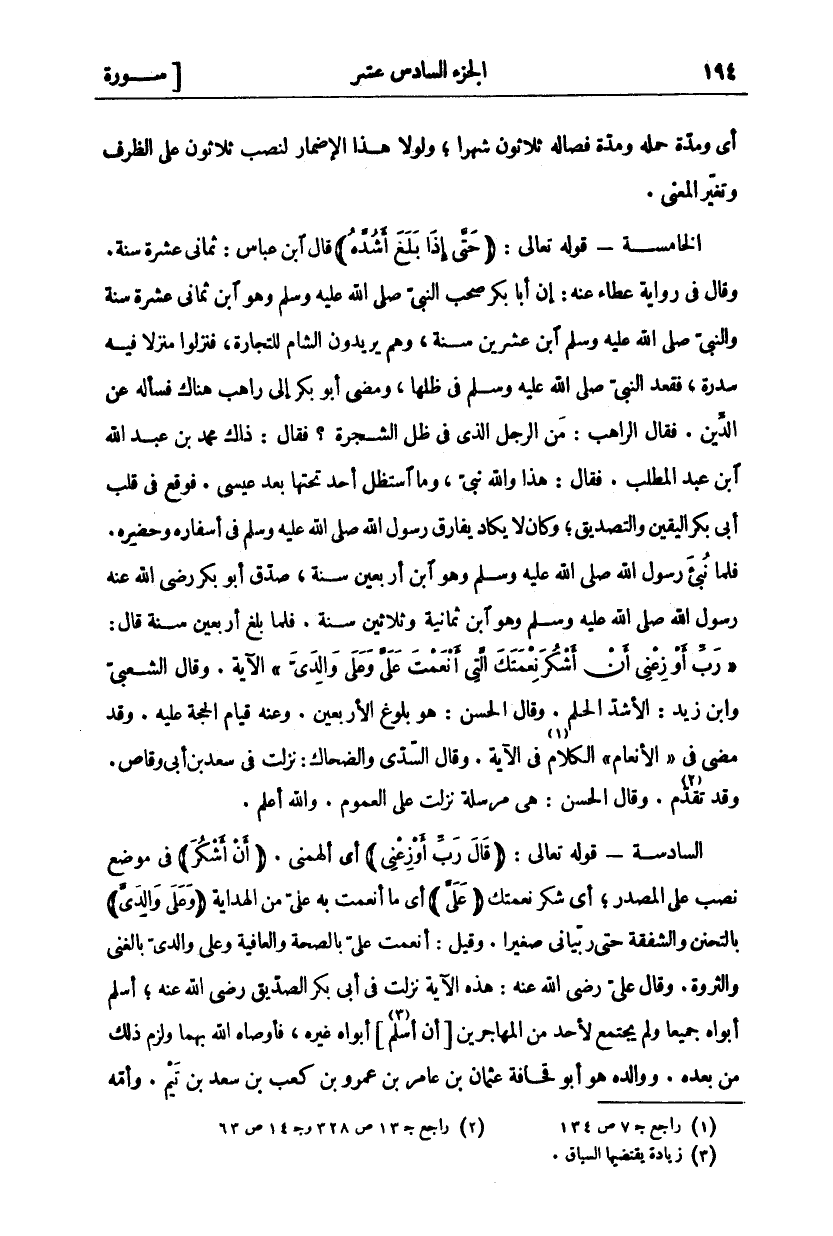 ١٩٤ الجزء السادس عشر [ ســورة
أى ومدّة حمله ومدّة فصاله ثلاثون شهرا ؛ ولولا هــذا الإضمار لنصب ثلاثون على الظرف
وتغيّر المعنى .
الخامســة — قوله تعالى : ﴿ حَتَّى إِذَا بَلَغَ أَشُدَّهُ ﴾ قال آبن عباس : ثمانى عشرة سنة .
وقال فى رواية عطاء عنه : إن أبا بكر صحب النبىّ صلى الله عليه وسلم وهو آبن ثمانى عشرة سنة
والنبىّ صلى الله عليه وسلم آبن عشرين ســنة ، وهم يريدون الشام للتجارة ، فنزلوا منزلا فيــه
سدرة ، فقعد النبىّ صلى الله عليه وســلم فى ظلها ، ومضى أبو بكر إلى راهب هناك فسأله عن
الدِّين . فقال الراهب : مَن الرجل الذى فى ظل الشــجرة ؟ فقال : ذاك محمد بن عبــد الله
آبن عبد المطلب . فقال : هذا والله نبىّ ، وما آستظل أحد تحتها بعد عيسى . فوقع فى قلب
أبى بكر اليقين والتصديق ؛ وكان لا يكاد يفارق رسول الله صلى الله عليه وسلم فى أسفاره وحضره .
فلما نُبِّئَ رسول الله صلى الله عليه وســلم وهو آبن أربعين ســنة ، صدّق أبو بكر رضى الله عنه
رسول الله صلى الله عليه وســلم وهو آبن ثمانية وثلاثين ســنة . فلما بلغ أربعين ســنة قال :
« رَبِّ أَوْزِعْنِى أَنْ أَشْكُرَ نِعْمَتَكَ الَّتِى أَنْعَمْتَ عَلَىَّ وَعَلَى وَالِدَىَّ » الآية . وقال الشــعبىّ
وابن زيد : الأشدّ الحلم . وقال الحسن : هو بلوغ الأربعين . وعنه قيام الحجة عليه . وقد
مضى فى « الأنعام » الكلام (١) فى الآية . وقال السّدّى والضحاك : نزلت فى سعد بن أبى وقاص .
وقد تقدّم (٢) . وقال الحسن : هى مرسلة نزلت على العموم . والله أعلم .
السادســة — قوله تعالى : ﴿ قَالَ رَبِّ أَوْزِعْنِى ﴾ أى ألهمنى . ﴿ أَنْ أَشْكُرَ ﴾ فى موضع
نصب على المصدر ؛ أى شكر نعمتك ﴿ عَلَىَّ ﴾ أى ما أنعمت به علىّ من الهداية ﴿ وَعَلَى وَالِدَىَّ ﴾
بالتحنن والشفقة حتى ربّيانى صغيرا . وقيل : أنعمت علىّ بالصحة والعافية وعلى والدىّ بالغنى
والثروة . وقال علىّ رضى الله عنه : هذه الآية نزلت فى أبى بكر الصدّيق رضى الله عنه ؛ أسلم
أبواه جميعا ولم يجتمع لأحد من المهاجرين [ أن أسلم (٣) ] أبواه غيره ، فأوصاه الله بهما ولزم ذلك
من بعده . ووالده هو أبو قحافة عثمان بن عامر بن عمرو بن كعب بن سعد بن تَيْم . وأمّه
(١) راجع جـ ٧ ص ١٣٤ (٢) راجع جـ ١٣ ص ٣٢٨ وجـ ١٤ ص ٦٣
(٣) زيادة يقتضيها السياق .